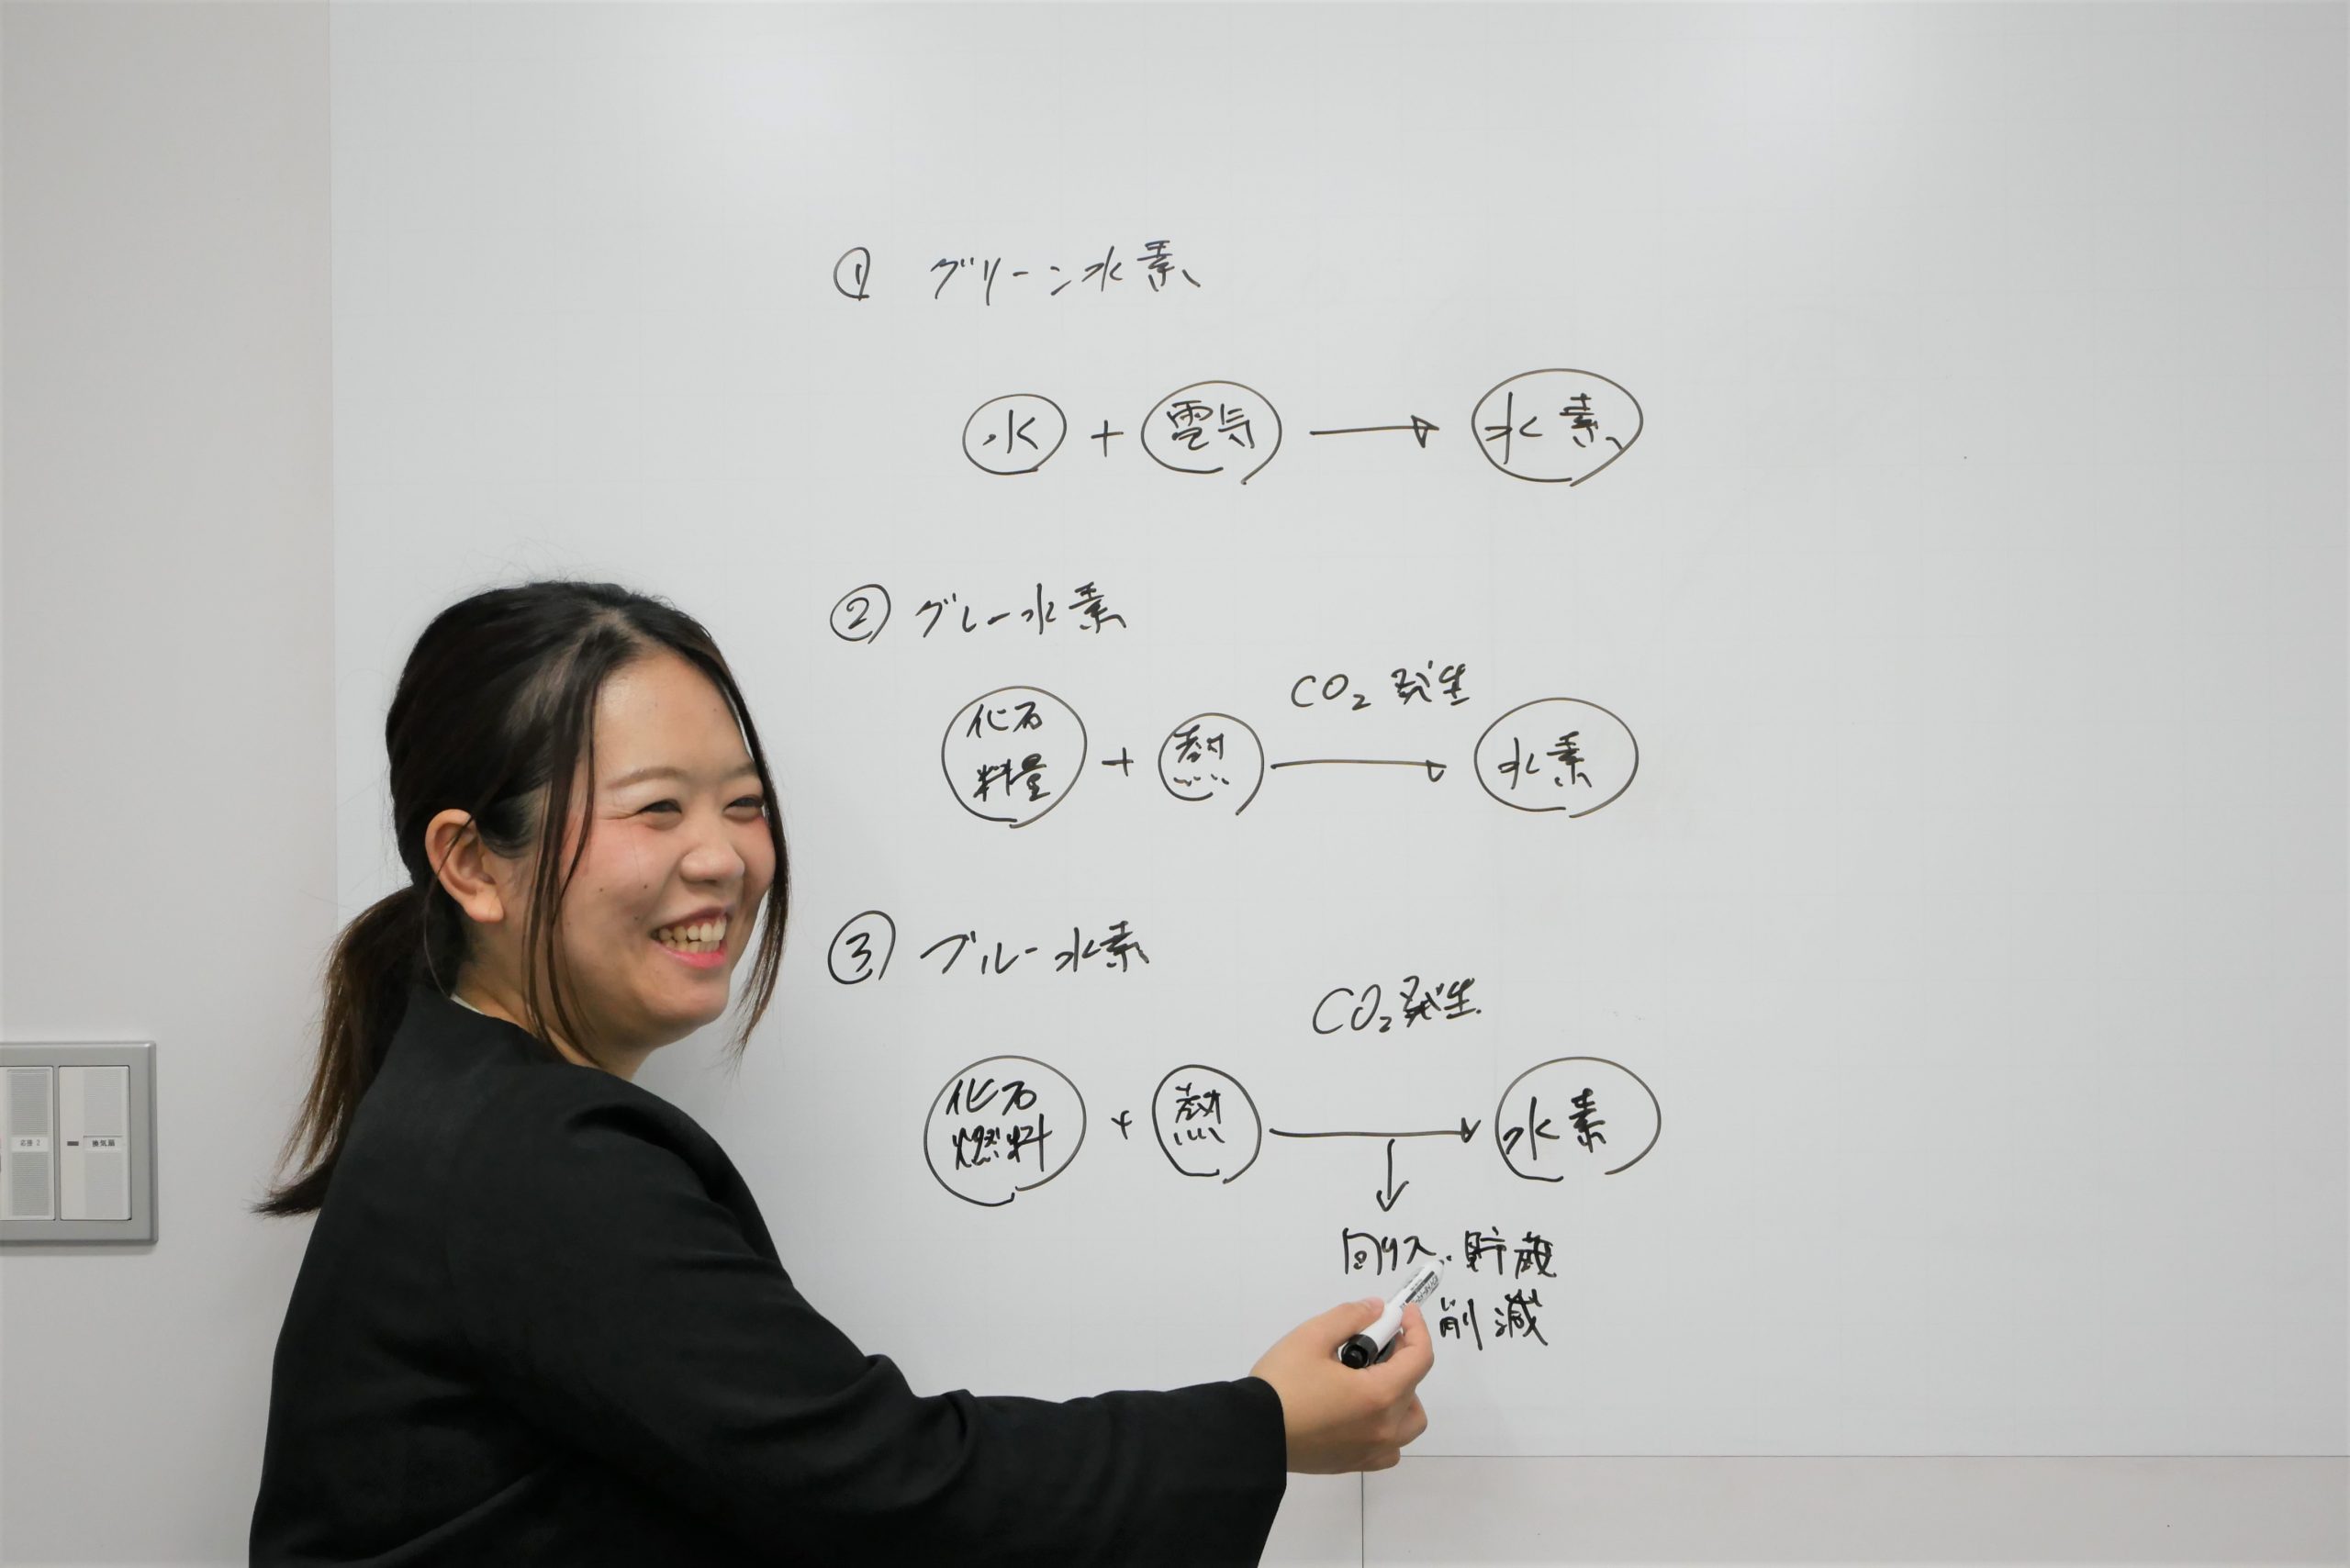 ① グリーン水素
水 + 電気 → 水素
② グレー水素
CO₂ 発生
化石
料量 + 熱 → 水素
③ ブルー水素
CO₂ 発生
化石
燃料 + 熱 → 水素
↓
回収・貯蔵
削減
換気扇